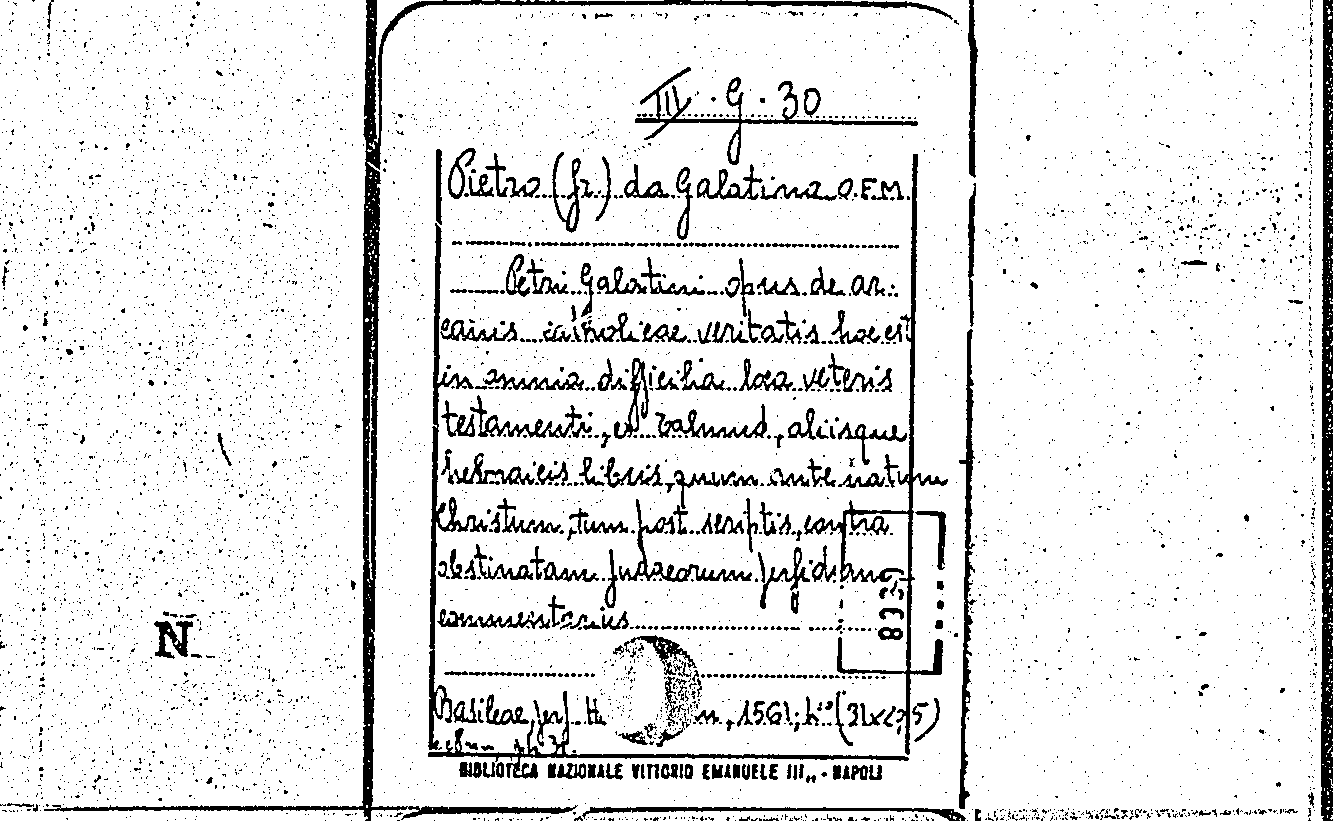 III · G · 30
Pietro (fr.) da Galatina O.F.M.
Petri Galatini opus de ar-
canis catholicae veritatis hoc est
in omnia difficilia loca veteris
testamenti, ex Talmud, aliisque
hebraicis libris, quum ante natum
Christum, tum post scriptis, contra
obstinatam Judaeorum perfidiam
commentarius
Basileae, per J. He n, 1561; (31x
BIBLIOTECA NAZIONALE VITTORIO EMANUELE III,, - NAPOLI
N